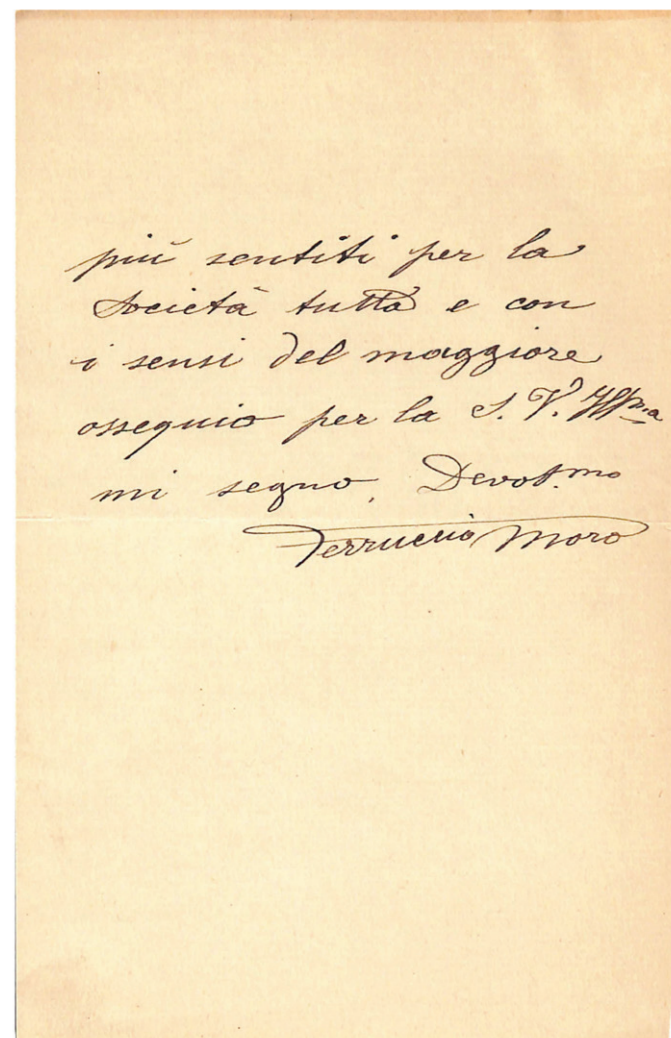 più sentiti per la
Società tutta e con
i sensi del maggiore
ossequio per la S. V. Ill.ma
mi segno, Devot.mo
Ferruccio Moro